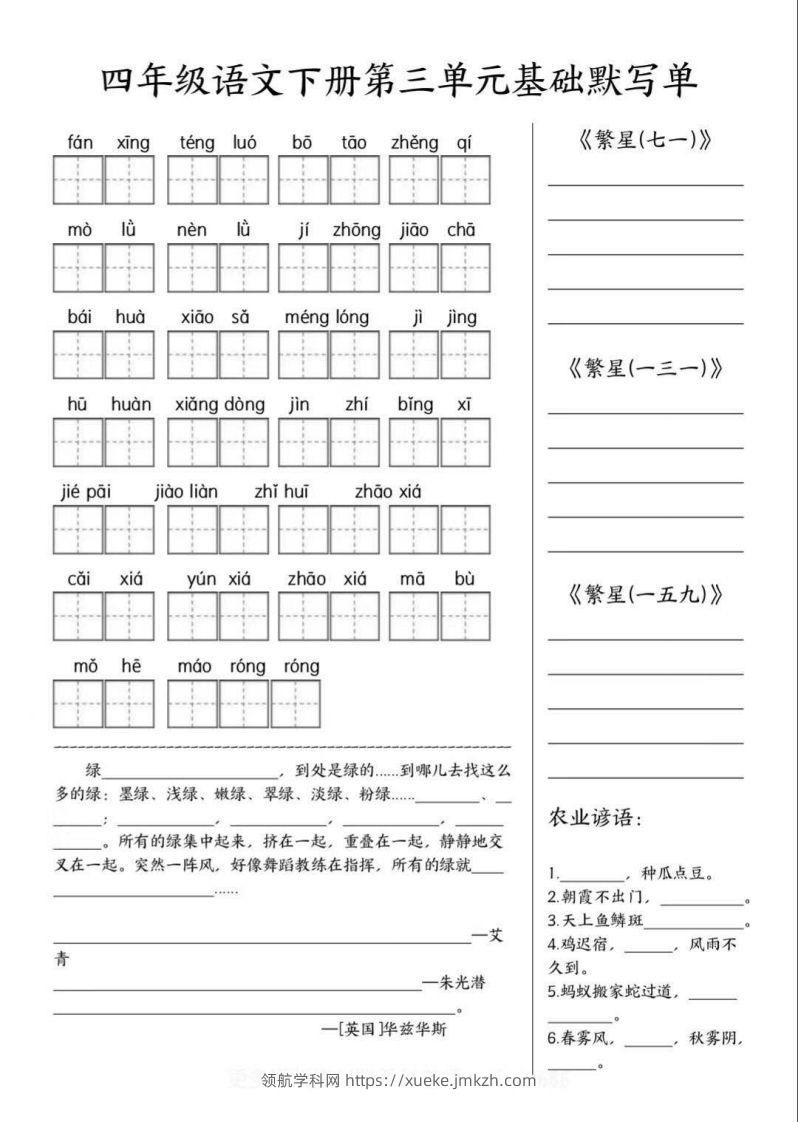 四年级语文下册第三单元基础默写单
fán xīng téng luó bō tāo zhěng qí
mò lǜ nèn lǜ jí zhōng jiāo chā
bái huà xiāo sǎ méng lóng jì jìng
hū huàn xiǎng dòng jìn zhí bǐng xī
jié pāi jiào liàn zhǐ huī zhāo xiá
cǎi xiá yún xiá zhāo xiá mā bù
mǒ hē máo róng róng
绿____，到处是绿的……到哪儿去找这么
多的绿：墨绿、浅绿、嫩绿、翠绿、淡绿、粉绿……____、__
____；____，____，____，____
____。所有的绿集中起来，挤在一起，重叠在一起，静静地交
叉在一起。突然一阵风，好像舞蹈教练在指挥，所有的绿就____
____……
____—艾
青
____—朱光潜
____。
—[英国]华兹华斯
《繁星(七一)》
《繁星(一三一)》
《繁星(一五九)》
农业谚语：
1.____，种瓜点豆。
2.朝霞不出门，____。
3.天上鱼鳞斑____。
4.鸡迟宿，____，风雨不
久到。
5.蚂蚁搬家蛇过道，____
____。
6.春雾风，____，秋雾阴，
____。
领航学科网 https://xueke.jmkzh.com